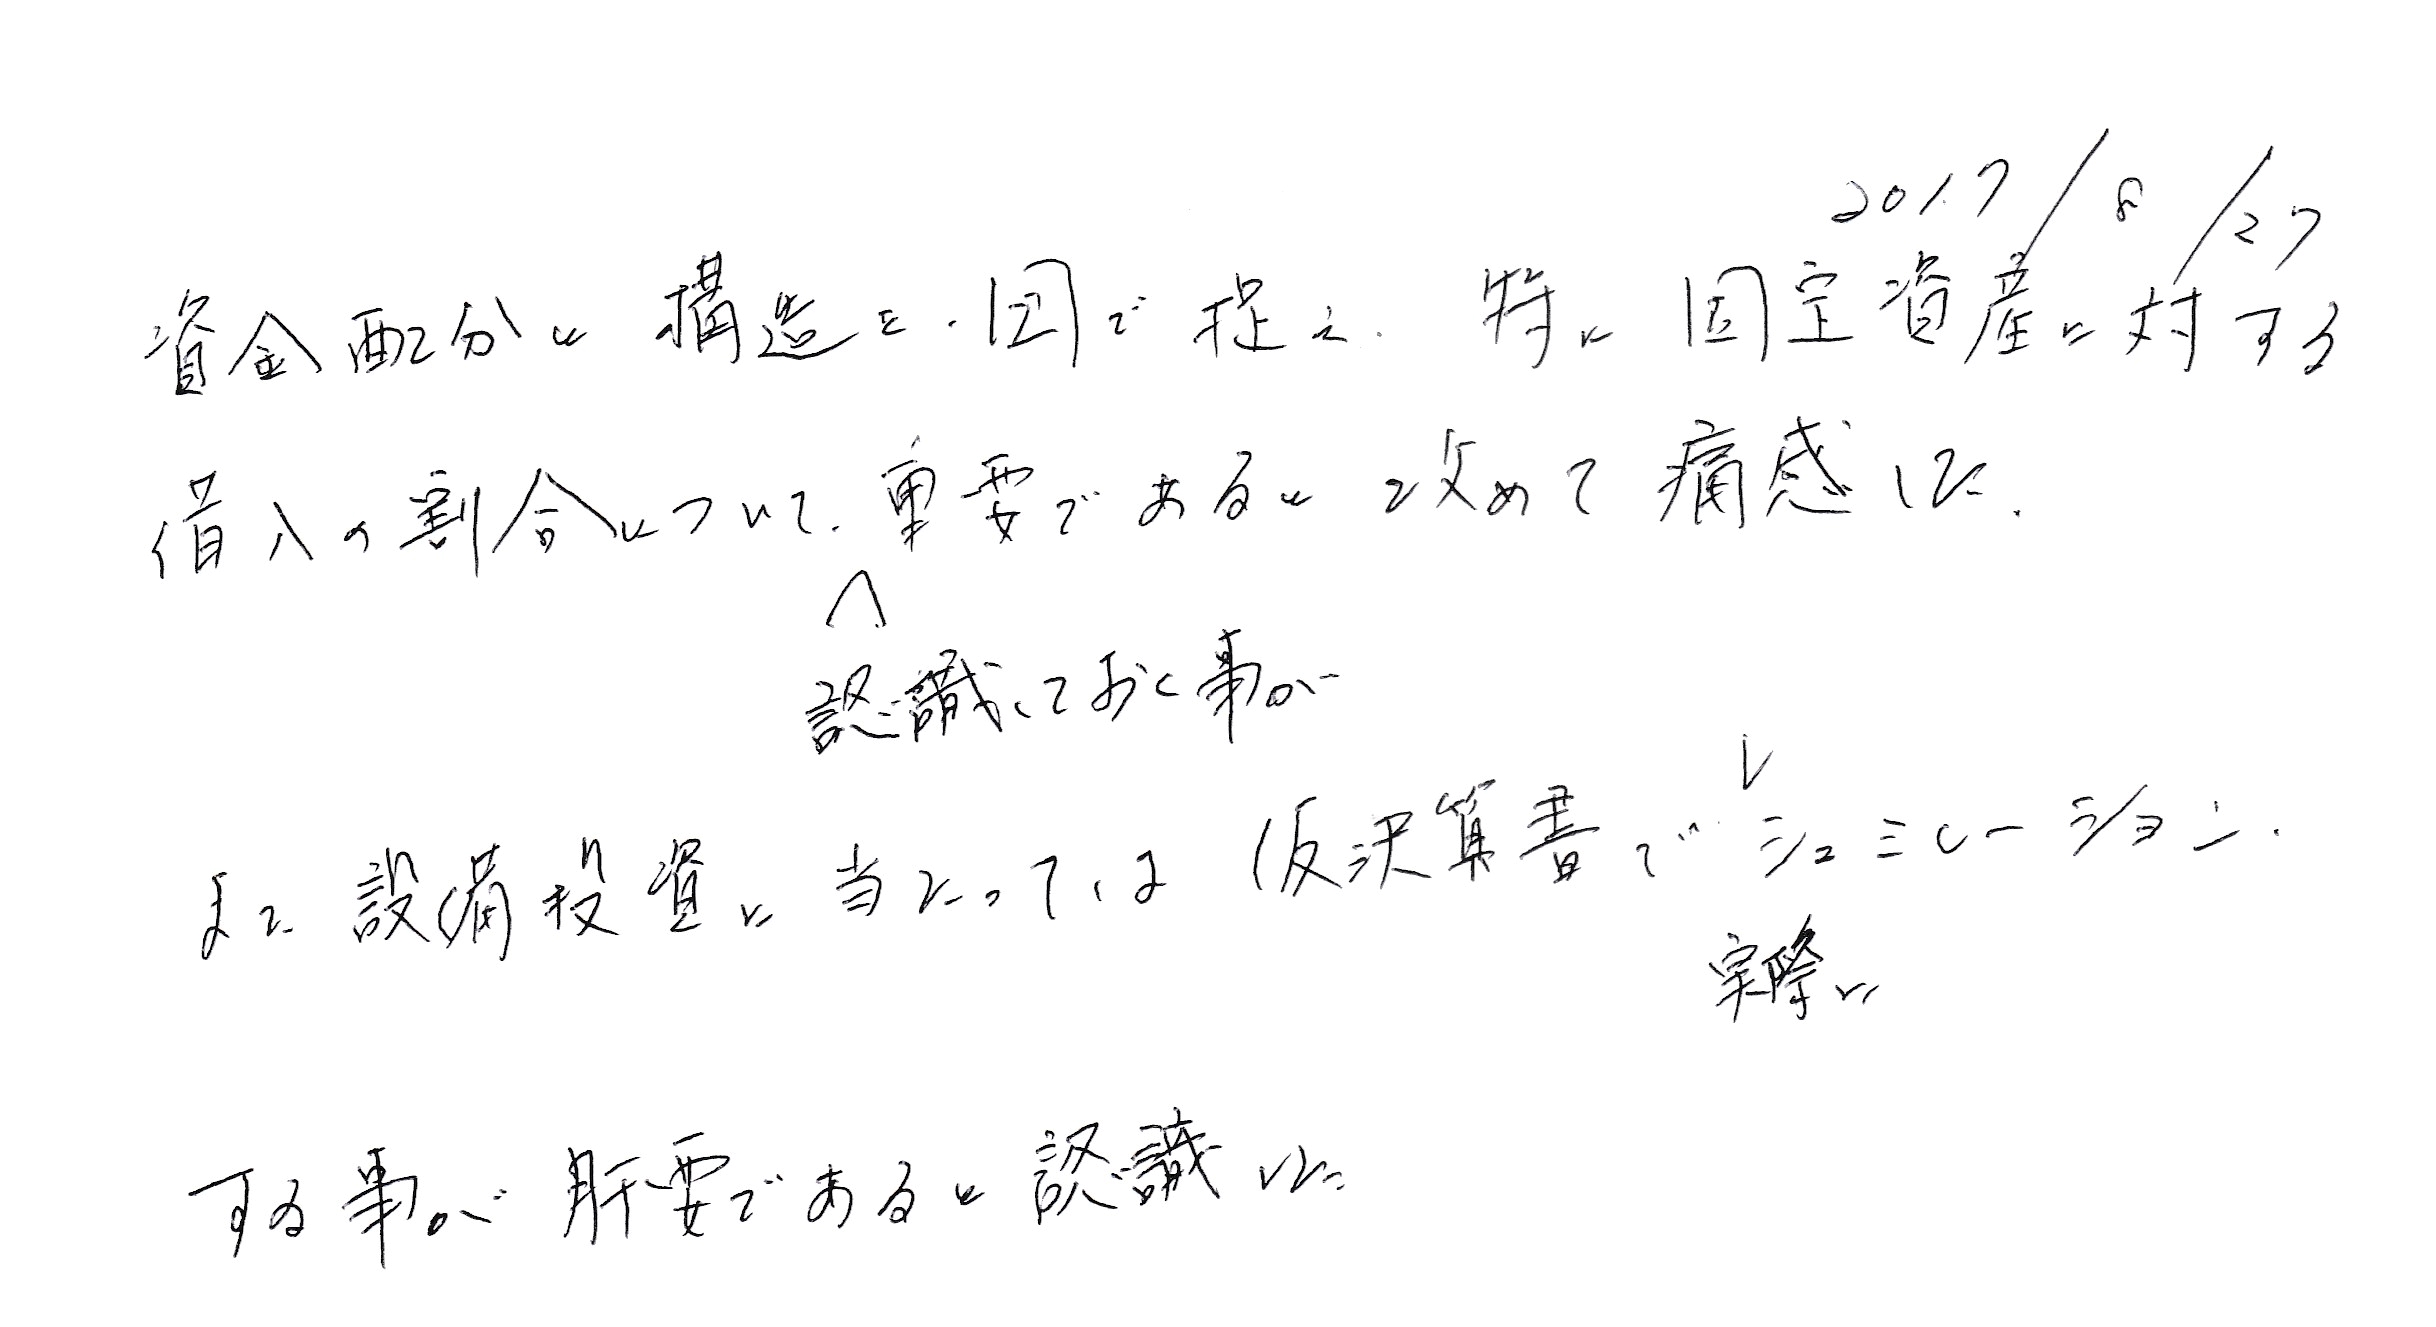 2017/8/27
資金配分と構造を.図で捉え.特に固定資産に対する
借入の割合について.重要であると改めて痛感した.
認識しておく事が
また設備投資に当たっては仮決算書でシュミレーション.
実際に
する事が肝要であると認識した